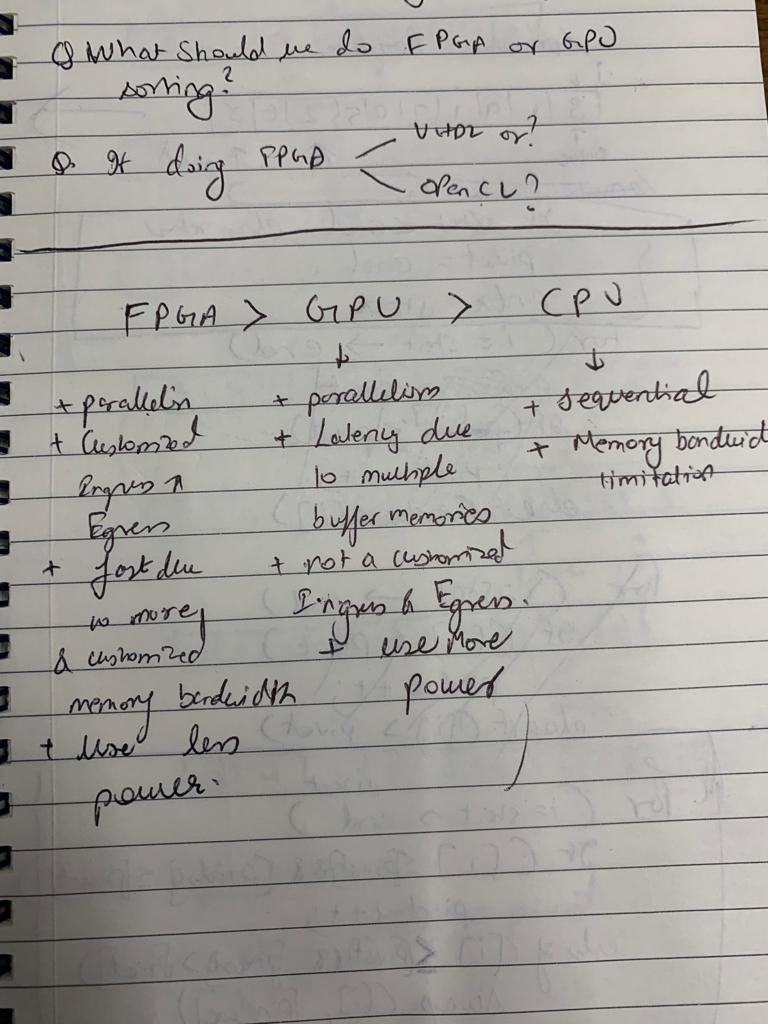 Q What should we do FPGA or GPU
sorting?
Q. If doing FPGA
VHDL or?
OpenCL?
FPGA > GPU > CPU
+ parallelin
+ Customized
Ingress
Egress
+ fast due
to more
& customized
memory bandwidth
+ Use less
power.
+ parallelism
+ Latency due
to multiple
buffer memories
+ not a customized
Ingress & Egress.
+ use more
power
+ sequential
+ Memory bandwid
limitation